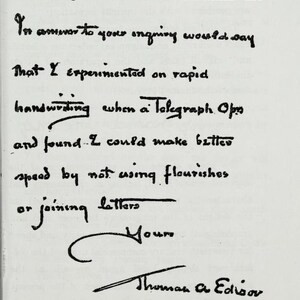 In answer to your inquiry would say
that I experimented on rapid
handwriting when a Telegraph Opr
and found I could make better
speed by not using flourishes
or joining letters
Yours
Thomas A Edison